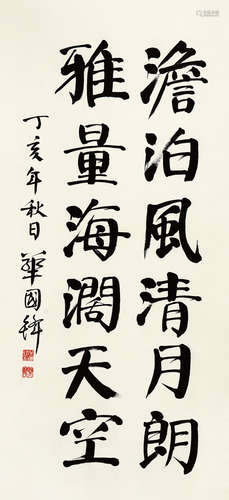 澹泊風清月朗
雅量海濶天空
丁亥年秋日華國鋒